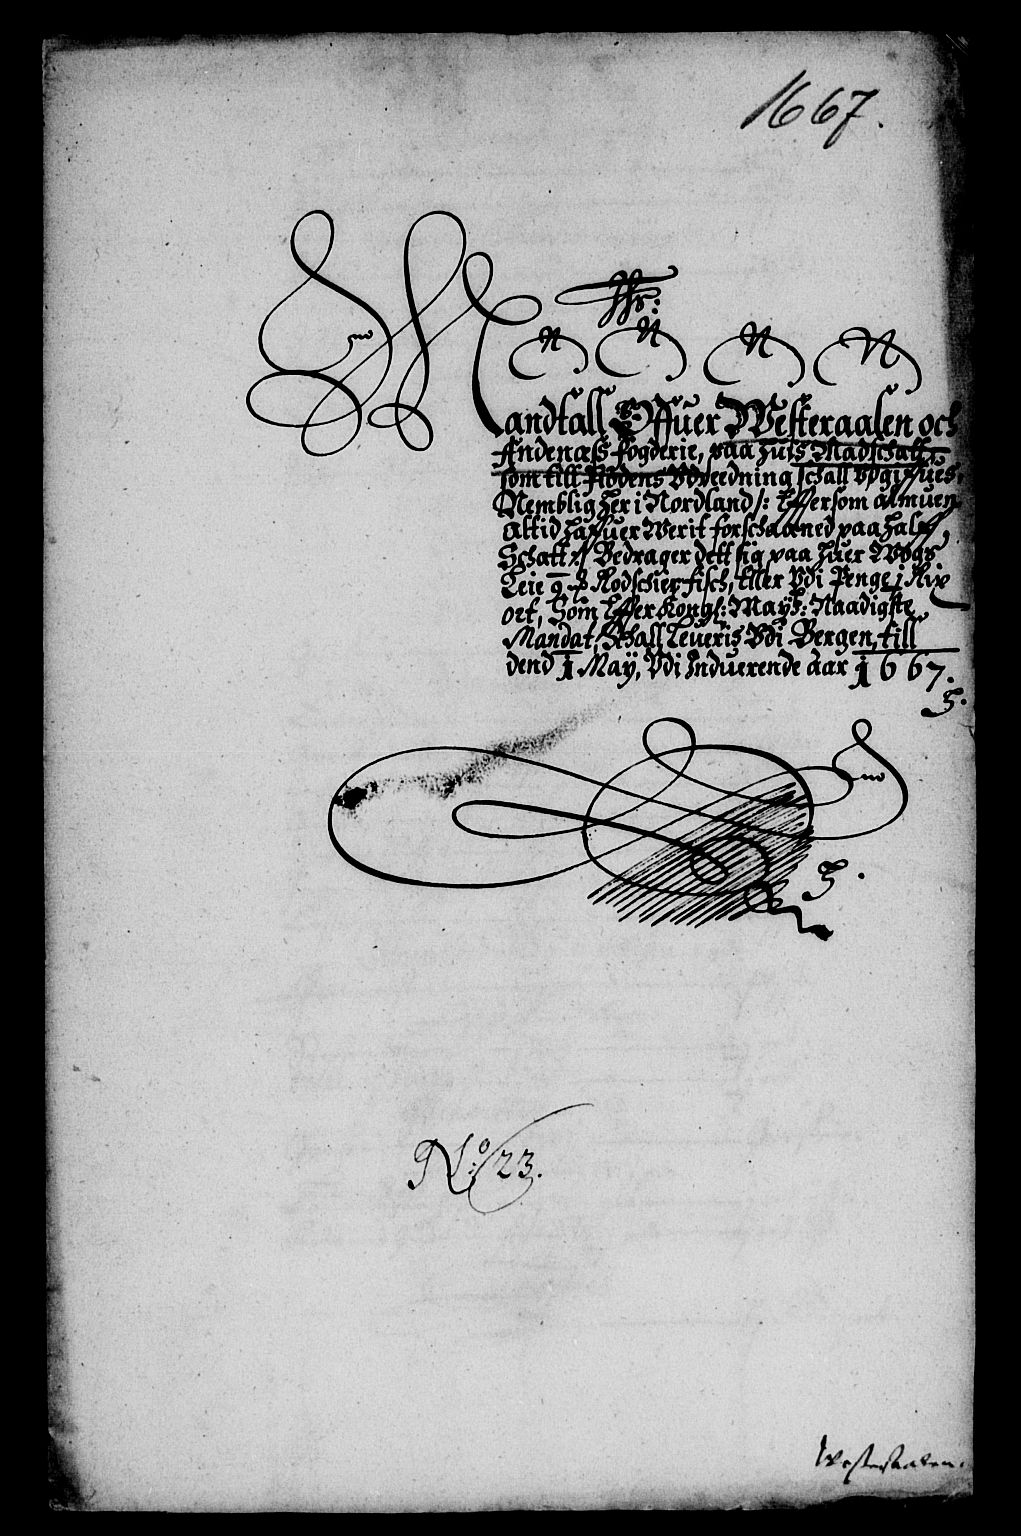 1667.
Ihs:
N N N N
Mandtall Offuer Westeraalen och
Andenæss fogderie, paa huis Madschatt,
som till flodens Vdreedning schall vpgiffues,
Nemblig her i Nordland /: Effersom almuen
altid haffuer Werit forschaaned paa halff
Schatt :/ Bedrager dett sig paa huer Wogs
Leie 9 ℔ Rodschier fisch, Eller Vdi Penge j Rix
ort, Som Effter Kongl: Mayts: Naadigste
Mandat, Schall Leueris Vdi Bergen, till
dend 1 May, Vdi Induerende aar 1667.
No: 23.
Westeraalen.